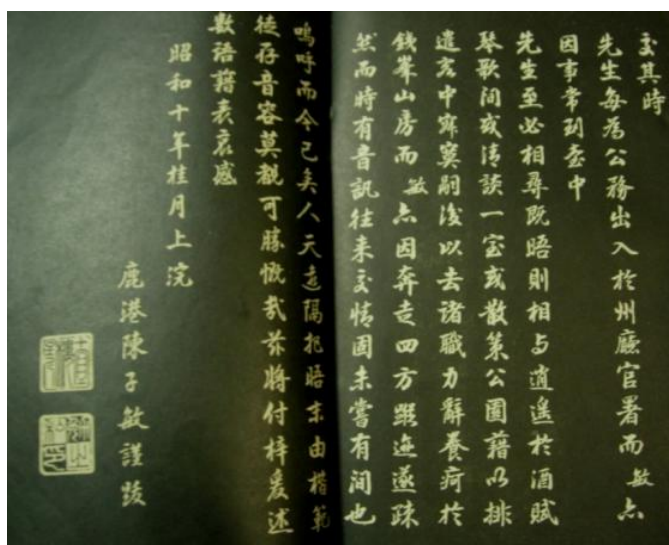 交其時
先生每為公務出入於州廳官署而敏亦
因事常到臺中
先生至必相尋既晤則相与逍遙於酒賦
琴歌間或清談一室或散策公園藉以排
遣客中寂寞嗣後以去諸職力辭養疴於
錢峯山房而敏亦因奔走四方蹤迹遂疎
然而時有音訊往来交情固未嘗有间也
嗚呼而今已矣人天遠隔把晤末由楷範
徒存音容莫覩可勝慨哉茲將付梓爰述
數語藉表哀感
昭和十年桂月上浣
鹿港陳子敏謹跋